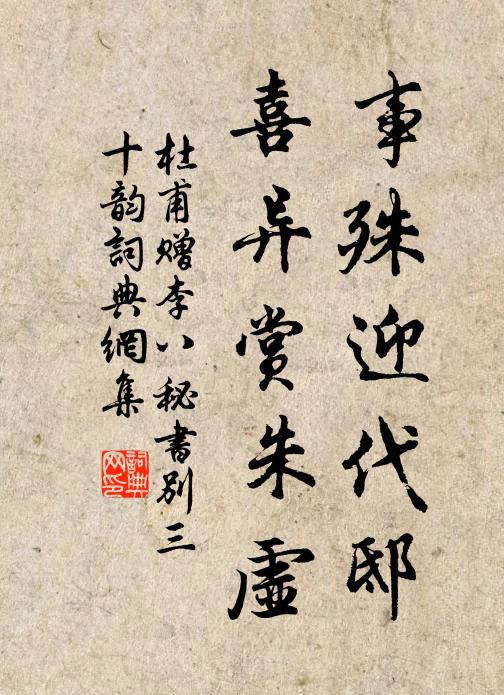 事殊迎代邸
喜异赏朱虚
杜甫赠李八秘書别三
十韵詞典網集
詞典
网印